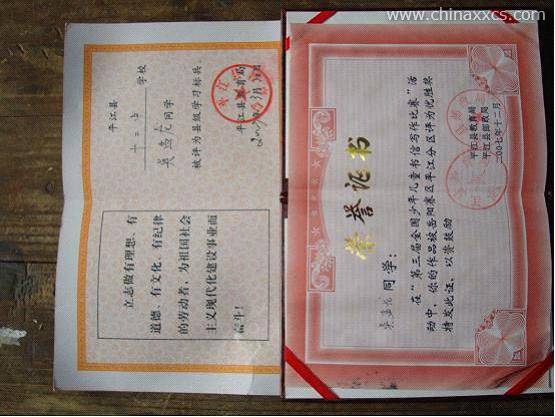 www.chinaxxcs.com
平江县
学校
同学
被评为县级学习标兵
平江县教育局
立志做有理想、有
道德、有文化、有纪律
的劳动者，为祖国社会
主义现代化建设事业而
奋斗！
荣誉证书
同学：
在“第三届全国少年儿童书信写作比赛”活
动中，你的作品被岳阳赛区平江分区评为优胜奖
特发此证，以资鼓励
平江县教育局
平江县邮政局
二00七年十二月